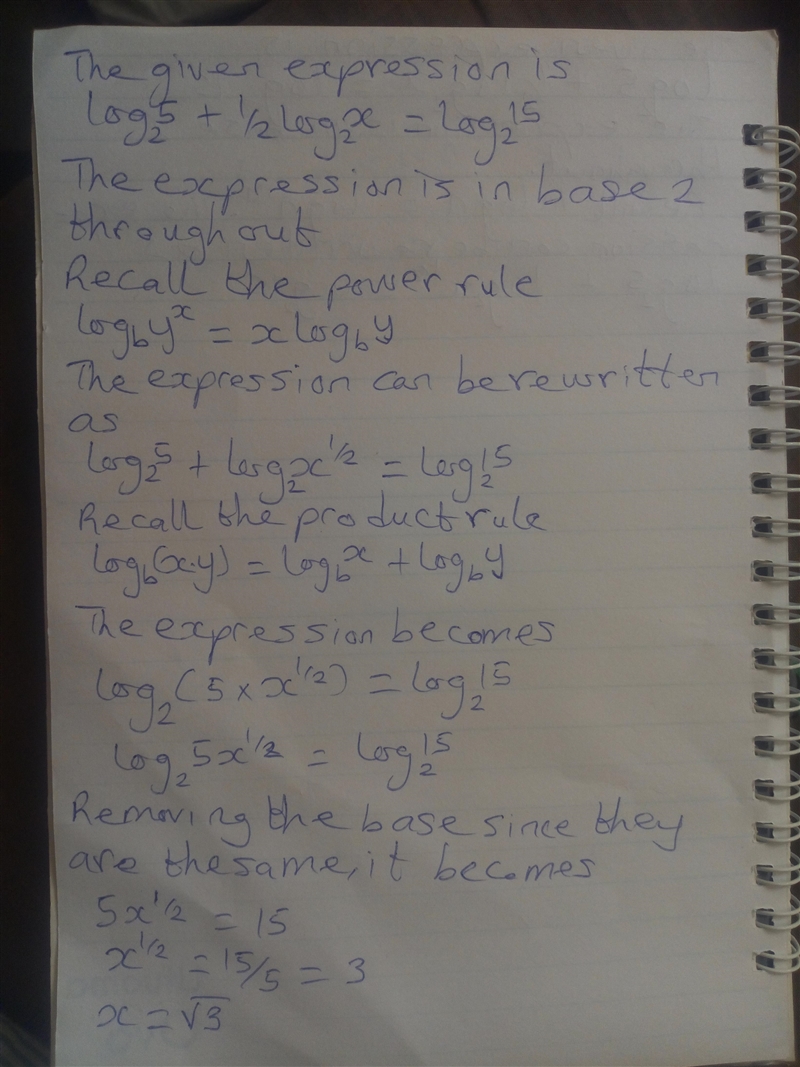 The given expression is
log₂5 + 1/2 log₂x = log₂15
The expression is in base 2
throughout
Recall the power rule
log_b y^x = x log_b y
The expression can be rewritten
as
log₂5 + log₂x^1/2 = log₂15
Recall the product rule
log_b(x.y) = log_b x + log_b y
The expression becomes
log₂(5 × x^1/2) = log₂15
log₂5x^1/2 = log₂15
Removing the base since they
are the same, it becomes
5x^1/2 = 15
x^1/2 = 15/5 = 3
x = √3